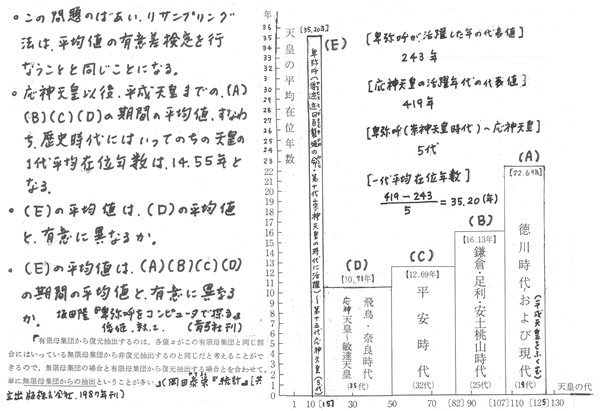 この問題のばあい、リサンプリング
法は、平均値の有意差検定を行
なうことと同じことになる。
応神天皇以後、平成天皇までの、(A)
(B)(C)(D)の期間の平均値、すなわ
ち、歴史時代にはいってのちの天皇の
1代平均在位年数は、14.55年と
なる。
(E)の平均値は、(D)の平均値
と、有意に異なるか。
(E)の平均値は、(A)(B)(C)(D)
の期間の平均値と、有意に異なる
か。
坂田隆『卑弥呼をコンピュータで探る』
(青弓社刊)
『有限母集団から復元抽出するのは、各値xがこの母集団と同じ割
合にはいっている無限母集団から非復元抽出するのと同じだと考えることがで
きるので、無限母集団の場合と有限母集団から復元抽出する場合とを合わせて、
単に無限母集団からの抽出ということが多い。』(岡田泰栄『統計』[共
立出版株式会社、1987年刊)
天皇の平均在位年数
年
36
35
34
33
32
31
30
29
28
27
26
25
24
23
22
21
20
19
18
17
16
15
14
13
12
11
10
9
8
7
6
5
4
3
2
1
0
[35.20年]
(E)
第十代崇神天皇の時代に活躍)〜第十五代応神天皇(5代)
[卑弥呼が活躍した年の代表値]
243年
[応神天皇の活躍年代の代表値]
419年
[卑弥呼(崇神天皇時代)〜応神天皇]
5代
[一代平均在位年数]
419-243
5
=35.20(年)
(D)
[10.71年]
飛鳥・奈良時代
応神天皇〜敏達天皇
(35代)
(C)
[12.69年]
平安時代
(32代)
(B)
[16.13年]
鎌倉・足利・安土桃山時代
(25代)
(A)
[22.69年]
徳川時代および現代
(平成天皇をふくむ)
(19代)
1 10 (15) 30 50 70 (82) 90 (107) 110 (125) 130
天皇の代